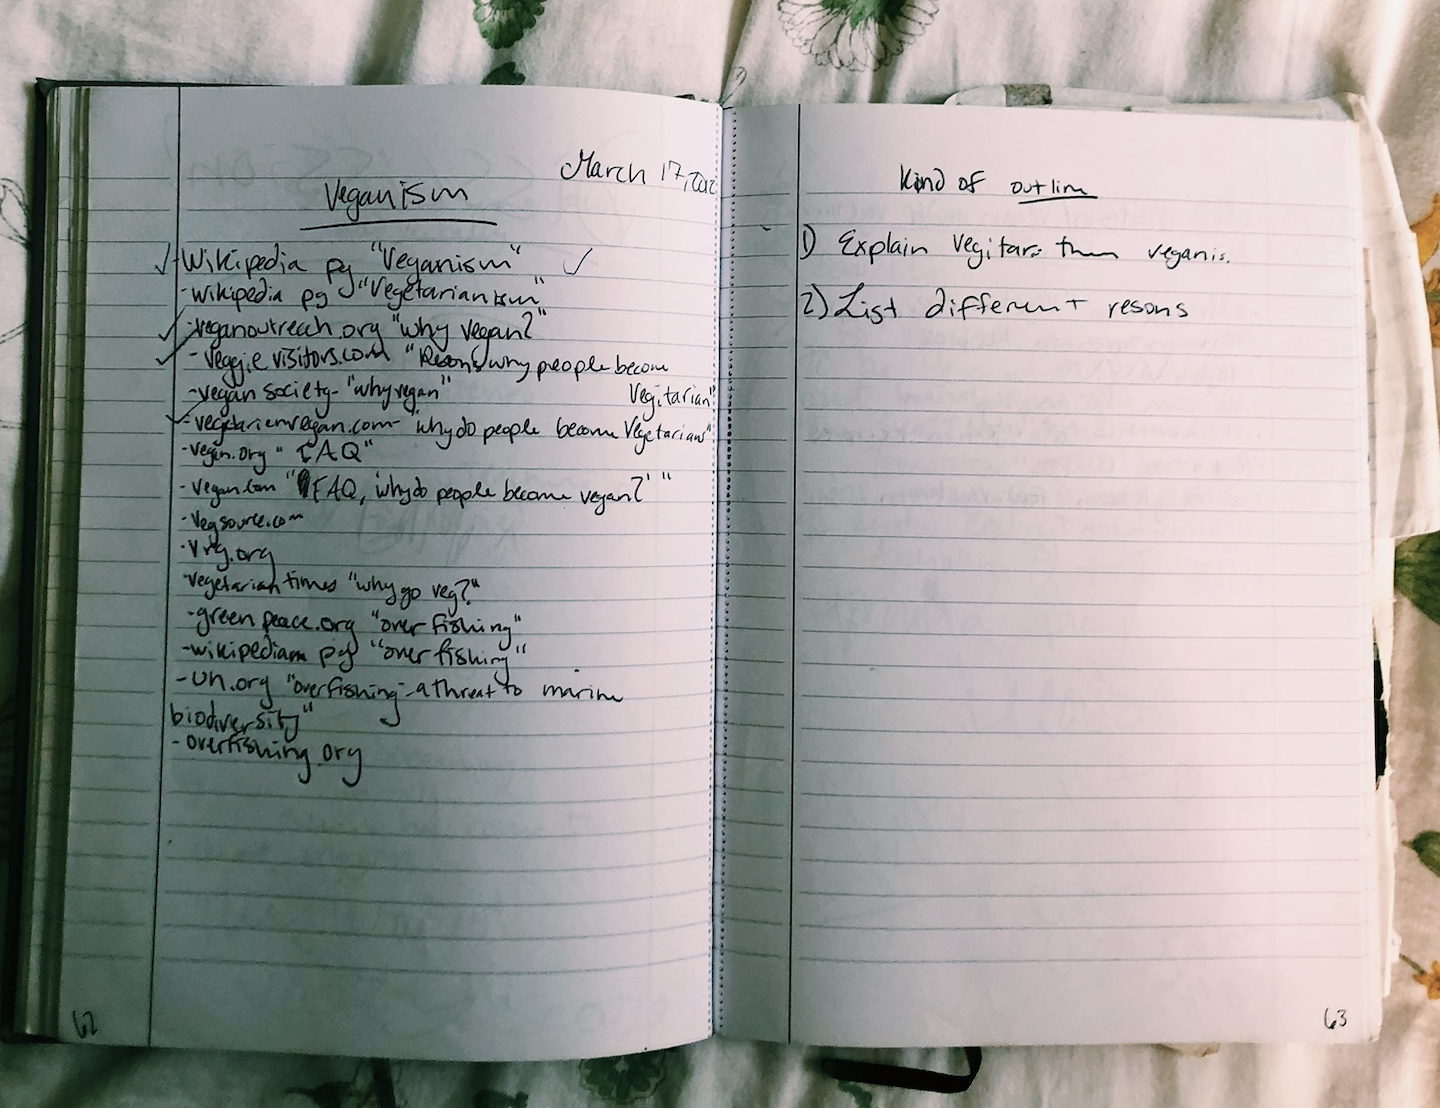 March 17, 202
Veganism
Wikipedia pg "Veganism"
-wikipedia pg "Vegetarianism"
-veganoutreach.org "why vegan?"
-veggie visitors.com "Resons why people become
Vegitarian"
-vegan society- "why vegan"
-vegetarienvegan.com- "why do people become Vegetarians"
-vegan.org "FAQ"
-vegan.com "FAQ, 'why do people become vegan?' "
-Vegsource.com
-Vrg.org
-vegetarian times "why go veg?"
-green peace.org "over fishing"
-wikipedia pg "over fishing"
-un.org "overfishing-a threat to marine
biodiversity"
-overfishing.org
62
Kind of outline
1) Explain Vegitar. then veganis.
2) List different resons
63